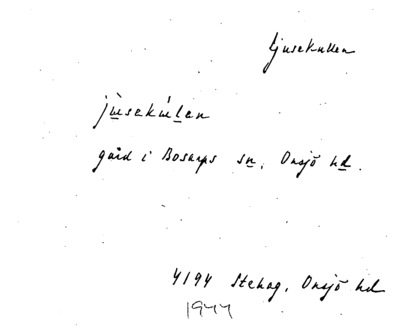 Ljusekullen
jùsekúlen
gård i Bosarps sn, Onsjö hd.
4194 Stehag, Onsjö hd
1944